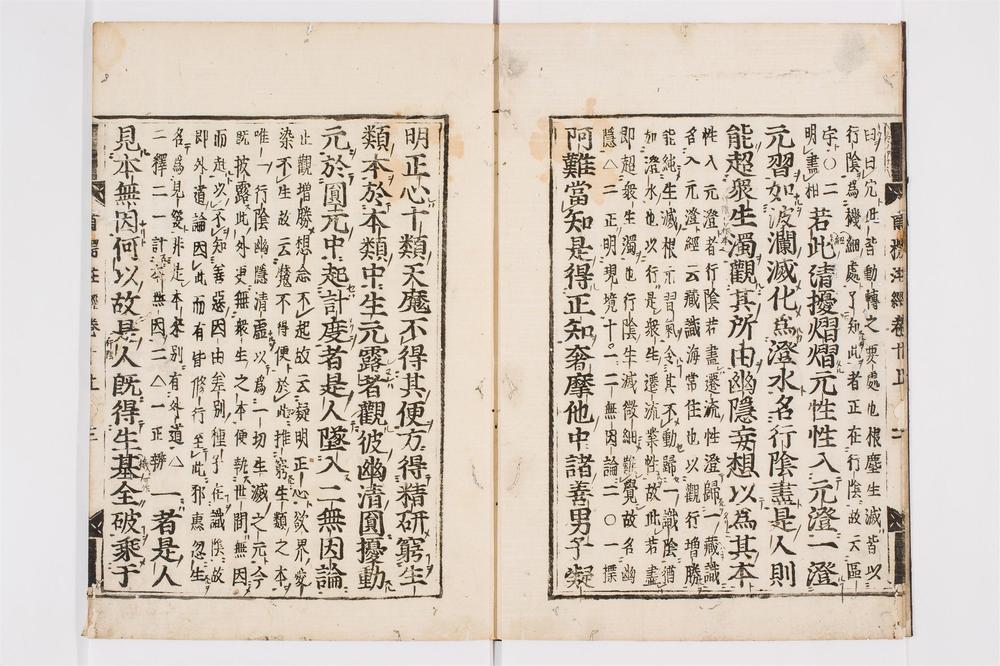 曰曰宂世皆動轉之要處也根塵生滅皆以
行陰爲機細處了知此者正在行陰故天區
字〇二
明盡相
若此清擾熠熠元性性入元澄一澄
元習如波瀾滅化爲澄水名行陰盡是人則
能超衆生濁觀其所由幽隱妄想以爲其本
性入元澄者行陰若盡遷流性澄歸一藏識
名入元澄經云藏識海常住也以觀行增勝
能純生滅根元習氣令其不動歸一識陰猶
如澄水也以行是衆生遷流業性故此若盡
即超衆生濁也行陰生滅微細難覺故名幽
隱△二正明現境十〇一二無因論二〇一標
阿難當知是得正知奢摩他中諸善男子凝
明正心十類天魔不得其便方得精研窮生
類本於本類中生元露者觀彼幽清圓擾動
元於圓元中起計度者是人墜入二無因論
止觀增勝想念不起故云凝明正心欲界愛
染不生故云魔不得便於此推窮生類之本
唯一行陰幽隱清虛以爲一切生滅之元今
既披露此外更無衆生之本便乾世間無因
而起以不知善惡因由差別種子在識陰故
即外道論因此而有皆修行至此邪慧忽生
名爲見發非走本來別有外道△
二釋二一計本無因二△一正辨
一者是人
見本無因何以故是人既得生基全破乘于